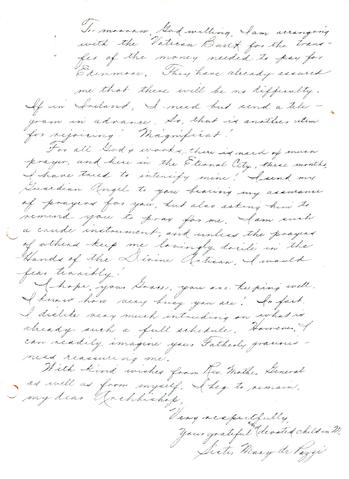 To-morrow, God willing, I am arranging
with the Vatican Bank for the trans-
fer of the money needed to pay for
Edenmore. They have already assured
me that there will be no difficulty.
If in Ireland, I need but send a tele-
gram in advance. So, that is another item
for rejoicing! Magnificat!
For all God's works, there is need of much
prayer, and here in the Eternal City, these months,
I have tried to intensify mine! I send my
Guardian Angel to you bearing my assurance
of prayers for you, but also asking him to
remind you to pray for me. I am such
a crude instrument, and unless the prayers
of others keep me lovingly docile in the
Hands of the Divine Artisan, I would
fear terribly!
I hope, your Grace, you are keeping well.
I know how very busy you are! In fact,
I dislike very much intruding on what is
already such a full schedule. However, I
can readily imagine your Fatherly gracious-
ness reassuring me.
With kind wishes from Rev. Mother General
as well as from myself, I beg to remain,
my dear Archbishop,
Very respectfully,
Your grateful and devoted child in M.
Sister Mary de Pazzi